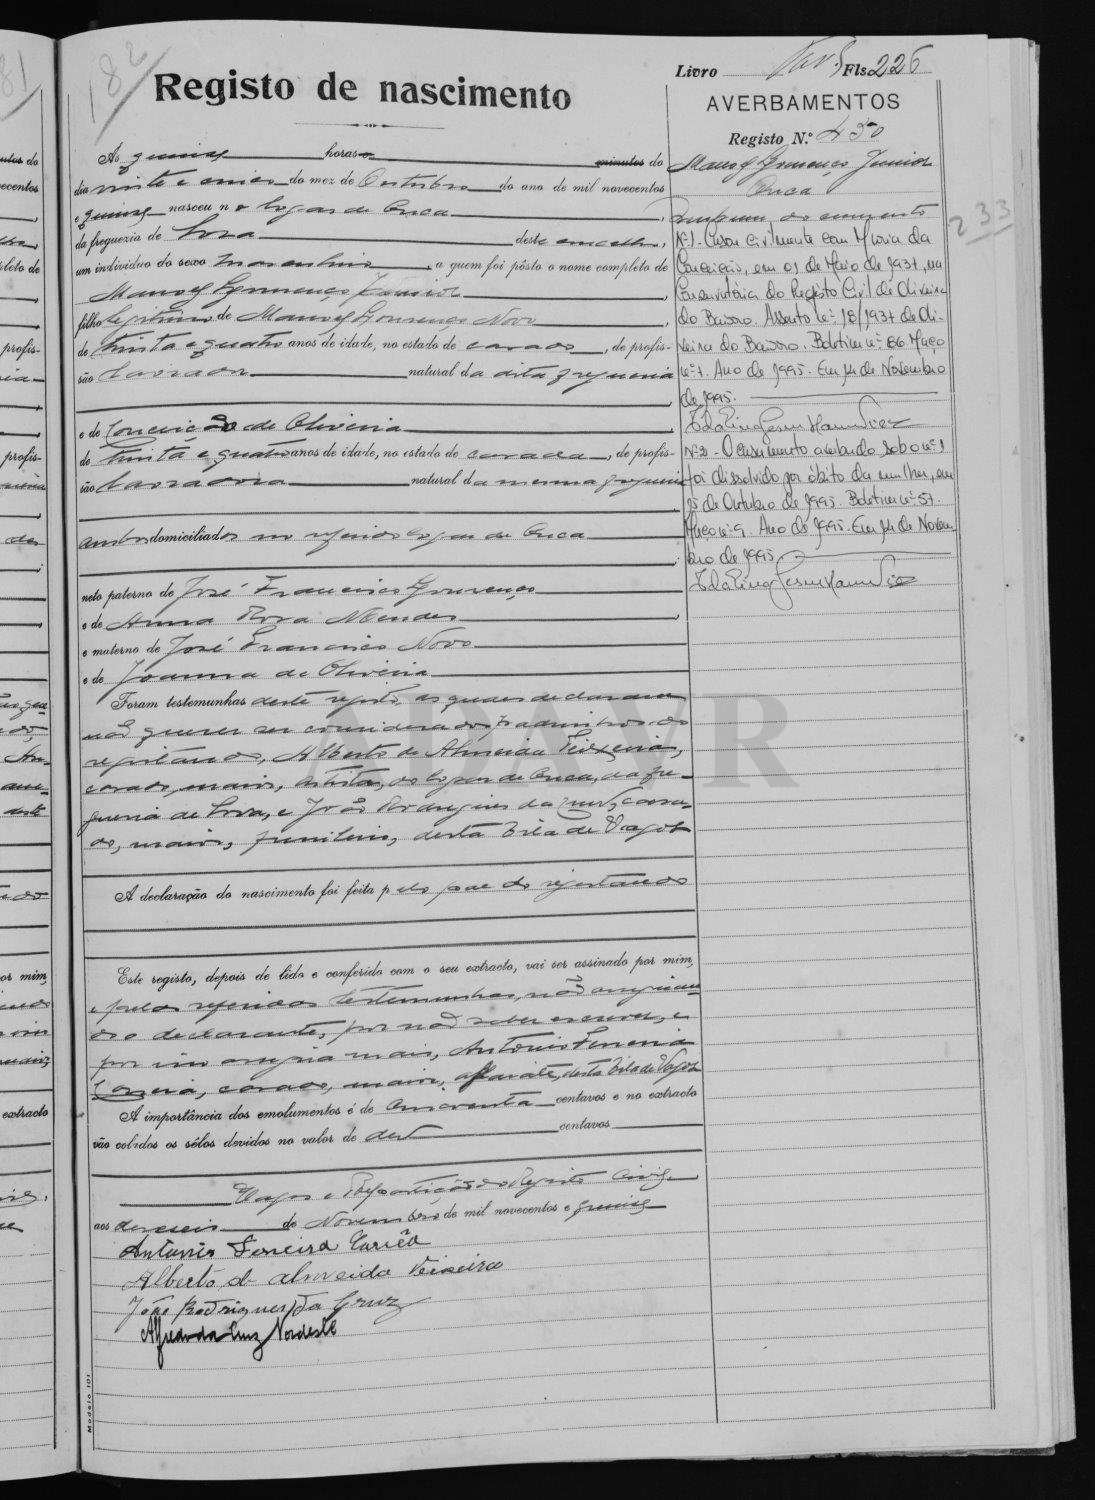 182
Livro Fls 226
Registo de nascimento
AVERBAMENTOS
Registo N.º 450
Ás quinze horas e minutos do
dia vinte e cinco do mez de Outubro do ano de mil novecentos
e quinze nasceu n o logar de
da freguezia de deste concelho,
um individuo do sexo masculino, a quem foi pôsto o nome completo de
Manoel Lourenço Junior,
filho legitimo de Manoel Lourenço Novo,
de trinta e quatro anos de idade, no estado de casado, de profis-
são lavrador natural da dita freguesia
e de Conceição de Oliveira
de trinta e quatro anos de idade, no estado de casada, de profis-
são lavradora natural da mesma freguesia
ambos domiciliados no referido logar de
neto paterno de José Francisco Lourenço
e de Anna Rosa Mendes
e materno de José Francisco Novo
e de Joanna de Oliveira
Foram testemunhas deste registo, as quaes declararam
não querer ser considerados padrinhos do
registando, Alberto de Almeida Teixeira,
casado, maior, artista, do logar de da fre-
guesia de e João Rodrigues da Cruz, casa-
do, maior, funileiro, desta Vila de Vagos
A declaração do nascimento foi feita pelo pae do registando
Este registo, depois de lido e conferido com o seu extracto, vai ser assinado por mim,
e pelas referidas testemunhas, não assignan-
do o declarante, por não saber escrever, e
por isso assigna mais, Antonio Ferreira
casado, maior, desta Vila de Vagos
A importância dos emolumentos é de centavos e no extracto
vão colados os sêlos devidos no valor de dez centavos
Vagos e Repartição do Registo Civil
aos dezeseis de Novembro de mil novecentos e quinze
Antonio Ferreira
Alberto de Almeida Teixeira
João Rodrigues da Cruz
Alfredo da Cruz Nordeste
Modelo 101
Manoel Lourenço Junior
233
Nº1- Casou civilmente com Maria da
Conceição, em 01 de Maio de 1937, na
Conservatória do Registo Civil de Oliveira
do Bairro. Assento nº 18/1937 de Oli-
veira do Bairro. Boletim nº 86 Maço
nº 1. Ano de 1995. Em 14 de Novembro
de 1995.
Nº2- O casamento averbado sob o nº 1
foi dissolvido por óbito da mulher, em
25 de Outubro de 1995. Boletim nº 57.
Maço nº 9. Ano de 1995. Em 14 de Novem-
bro de 1995
ADAVR